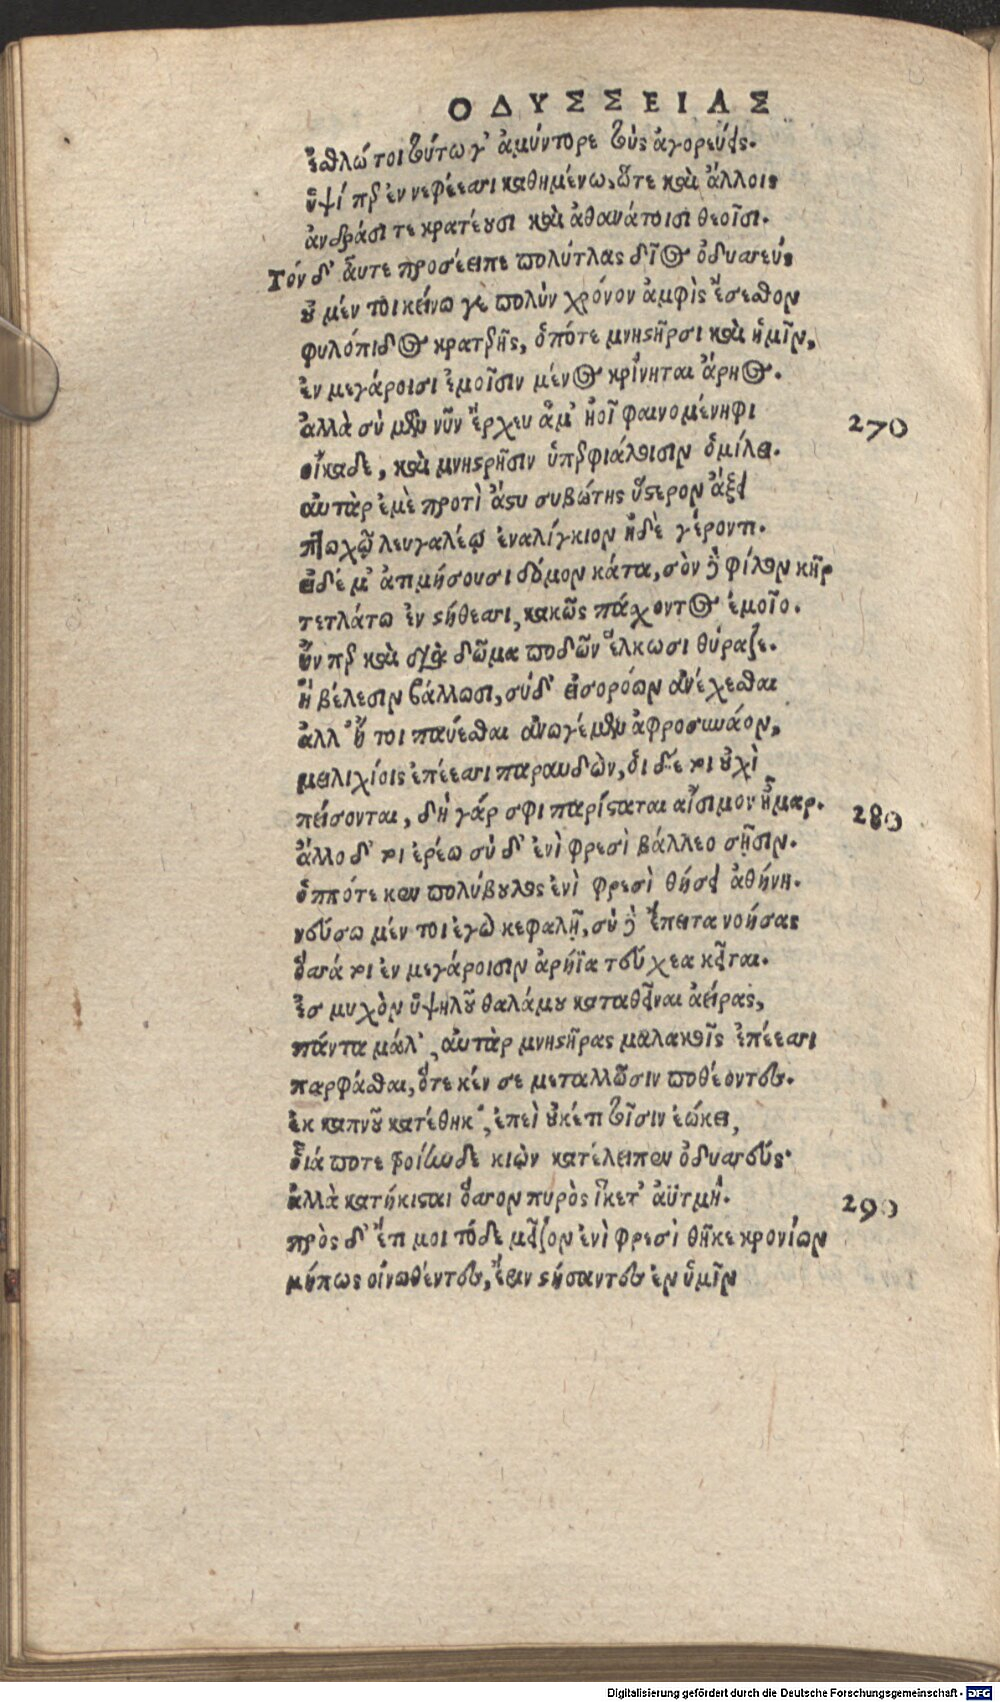 ΟΔΥΣΣΕΙΑΣ
ἐσθλώ τοι τούτω γ' ἀμύντορε τοὺς ἀγορεύεις.
ὕψί περ ἐν νεφέεσσι καθημένω, ὥτε καὶ ἄλλοις
ἀνδράσί τε κρατέουσι καὶ ἀθανάτοισι θεοῖσι.
Τόνδ' αὖτε προσέειπε πολύτλας δῖος ὀδυσσεύς
οὐ μέν τοι κείνω γε πολὺν χρόνον ἀμφὶς ἔσεσθον
φυλόπιδος κρατερῆς, ὁπότε μνηστῆρσι καὶ ἡμῖν,
ἐν μεγάροισι ἐμοῖσιν μένος κρίνηται ἄρηος.
ἀλλὰ σὺ μὲν νῦν ἔρχευ ἅμ' ἠοῖ φαινομένηφι 270
οἴκαδε, καὶ μνηστῆρσιν ὑπερφιάλοισιν ὁμίλει.
αὐτὰρ ἐμὲ προτὶ ἄστυ συβώτης ὕστερον ἄξει
πτωχῷ λευγαλέῳ ἐναλίγκιον ἠδὲ γέροντι.
εἰδέ μ' ἀτιμήσουσι δόμον κάτα, σὸν δὲ φίλον κῆρ
τετλάτω ἐν στήθεσσι, κακῶς πάσχοντος ἐμοῖο.
ἤν περ καὶ διὰ δῶμα ποδῶν ἕλκωσι θύραζε.
ἢ βέλεσιν βάλλωσι, σύδ' εἰσορόων ἀνέχεσθαι
ἀλλ' ἤ τοι παύεσθαι ἀνωγέμεν ἀφροσυνάον,
μειλιχίοις ἐπέεσσι παραυδῶν, οἱ δέ τι οὐχὶ
πείσονται, δὴ γάρ σφι παρίσταται αἴσιμον ἦμαρ. 280
ἄλλο δ' τι ἐρέω σὺ δ' ἐνὶ φρεσὶ βάλλεο σῇσιν.
ὁππότε κεν πολύβουλος ἐνὶ φρεσὶ θήσει ἀθήνη.
νεύσω μέν τοι ἐγὼ κεφαλῇ, σὺ δὲ ἔπειτα νοήσας
ὅσσά τι ἐν μεγάροισιν ἀρήϊα τεύχεα κεῖται.
ἐσ μυχὸν ὑψηλοῦ θαλάμου καταθεῖναι ἀείρας,
πάντα μάλ', αὐτὰρ μνηστῆρας μαλακοῖς ἐπέεσσι
παρφάσθαι, ὅτε κέν σε μεταλλῶσιν ποθέοντες.
ἐκ καπνοῦ κατέθηκ', ἐπεὶ οὐκέτι τοῖσιν ἐώκει,
οἷά ποτε τροίηνδε κιὼν κατέλειπεν ὀδυσσεύς·
ἀλλὰ κατήκισται ὅσσον πυρὸς ἵκετ' ἀϋτμή. 290
πρὸς δ' ἔτι μοι τόδε μεῖζον ἐνὶ φρεσὶ θῆκε κρονίων
μήπως οἰνωθέντες, ἔριν στήσαντες ἐν ὑμῖν
Digitalisierung gefördert durch die Deutsche Forschungsgemeinschaft - DFG